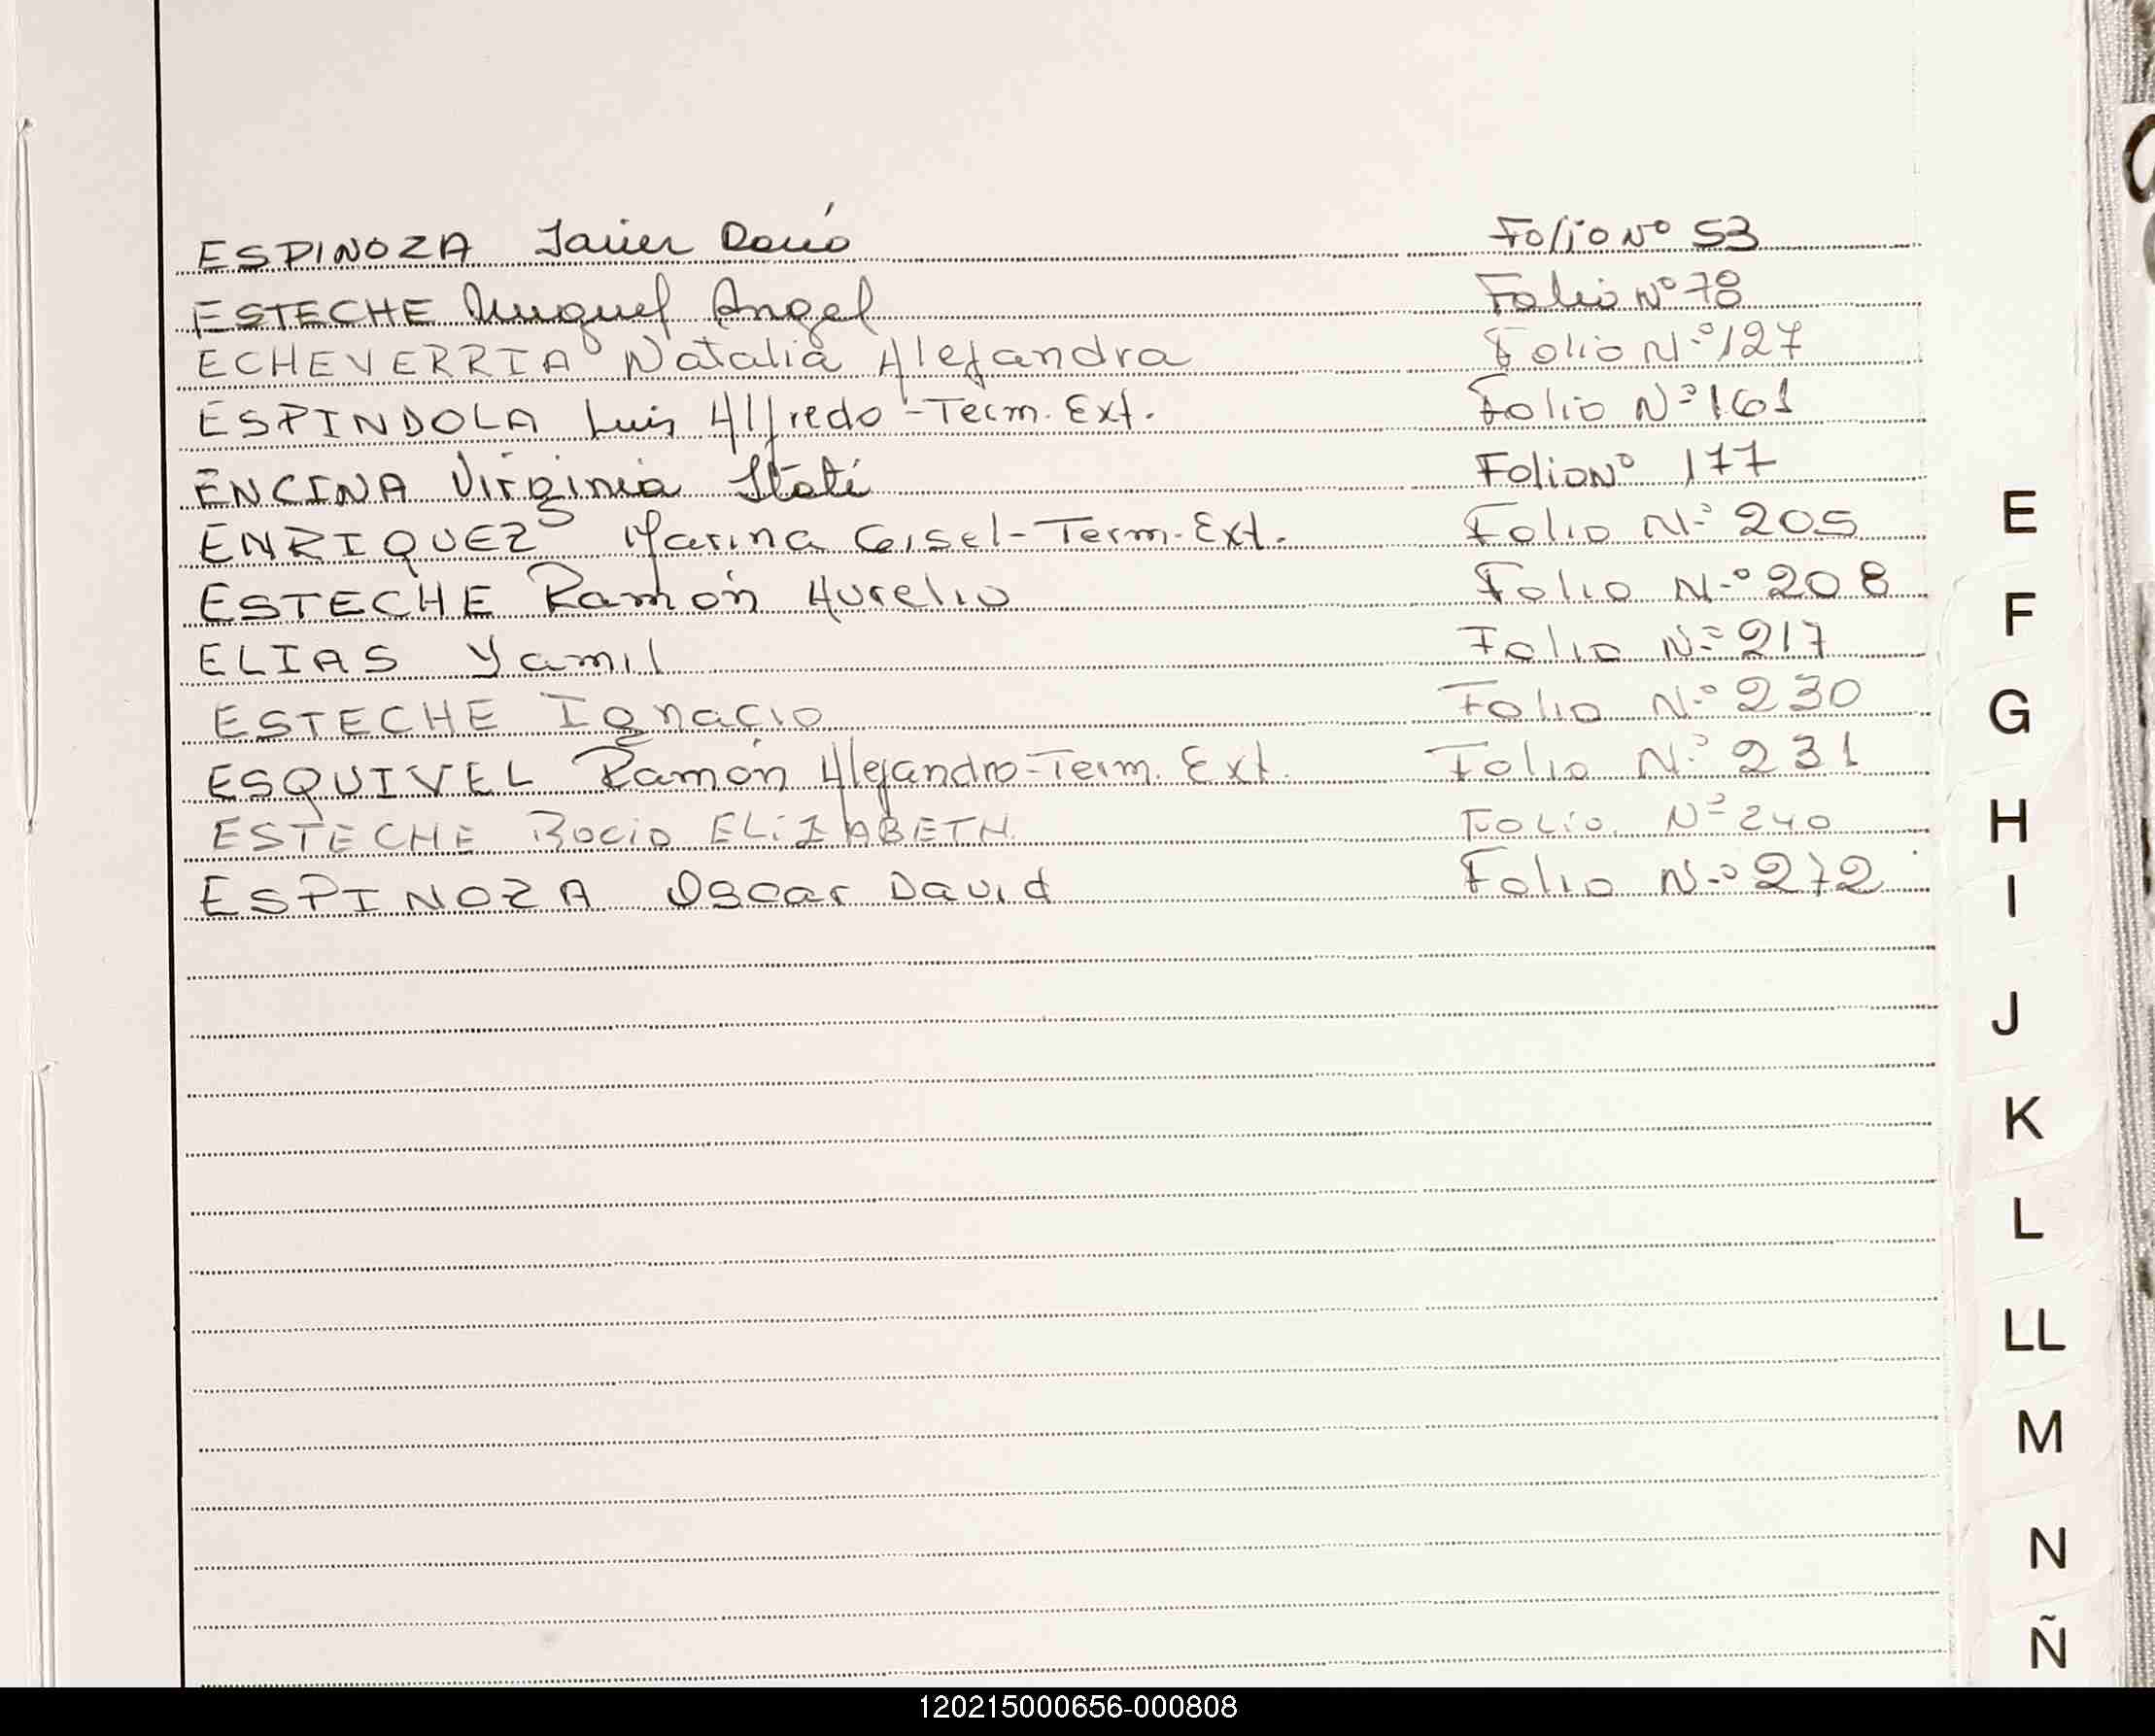 ESPINOZA Javier Darío Folio Nº 53
ESTECHE Miguel Angel Folio Nº 78
ECHEVERRIA Natalia Alejandra Folio Nº 127
ESPINDOLA Luis Alfredo - Term. Ext. Folio Nº 161
ENCINA Virginia Itatí Folio Nº 177
ENRIQUEZ Marina Geisel - Term. Ext. Folio Nº 205
ESTECHE Ramón Aurelio Folio Nº 208
ELIAS Yamil Folio Nº 217
ESTECHE Ignacio Folio Nº 230
ESQUIVEL Ramón Alejandro - Term. Ext. Folio Nº 231
ESTECHE Rocio ELIZABETH Folio Nº 240
ESPINOZA Oscar David Folio Nº 272
E
F
G
H
I
J
K
L
LL
M
N
Ñ
120215000656-000808